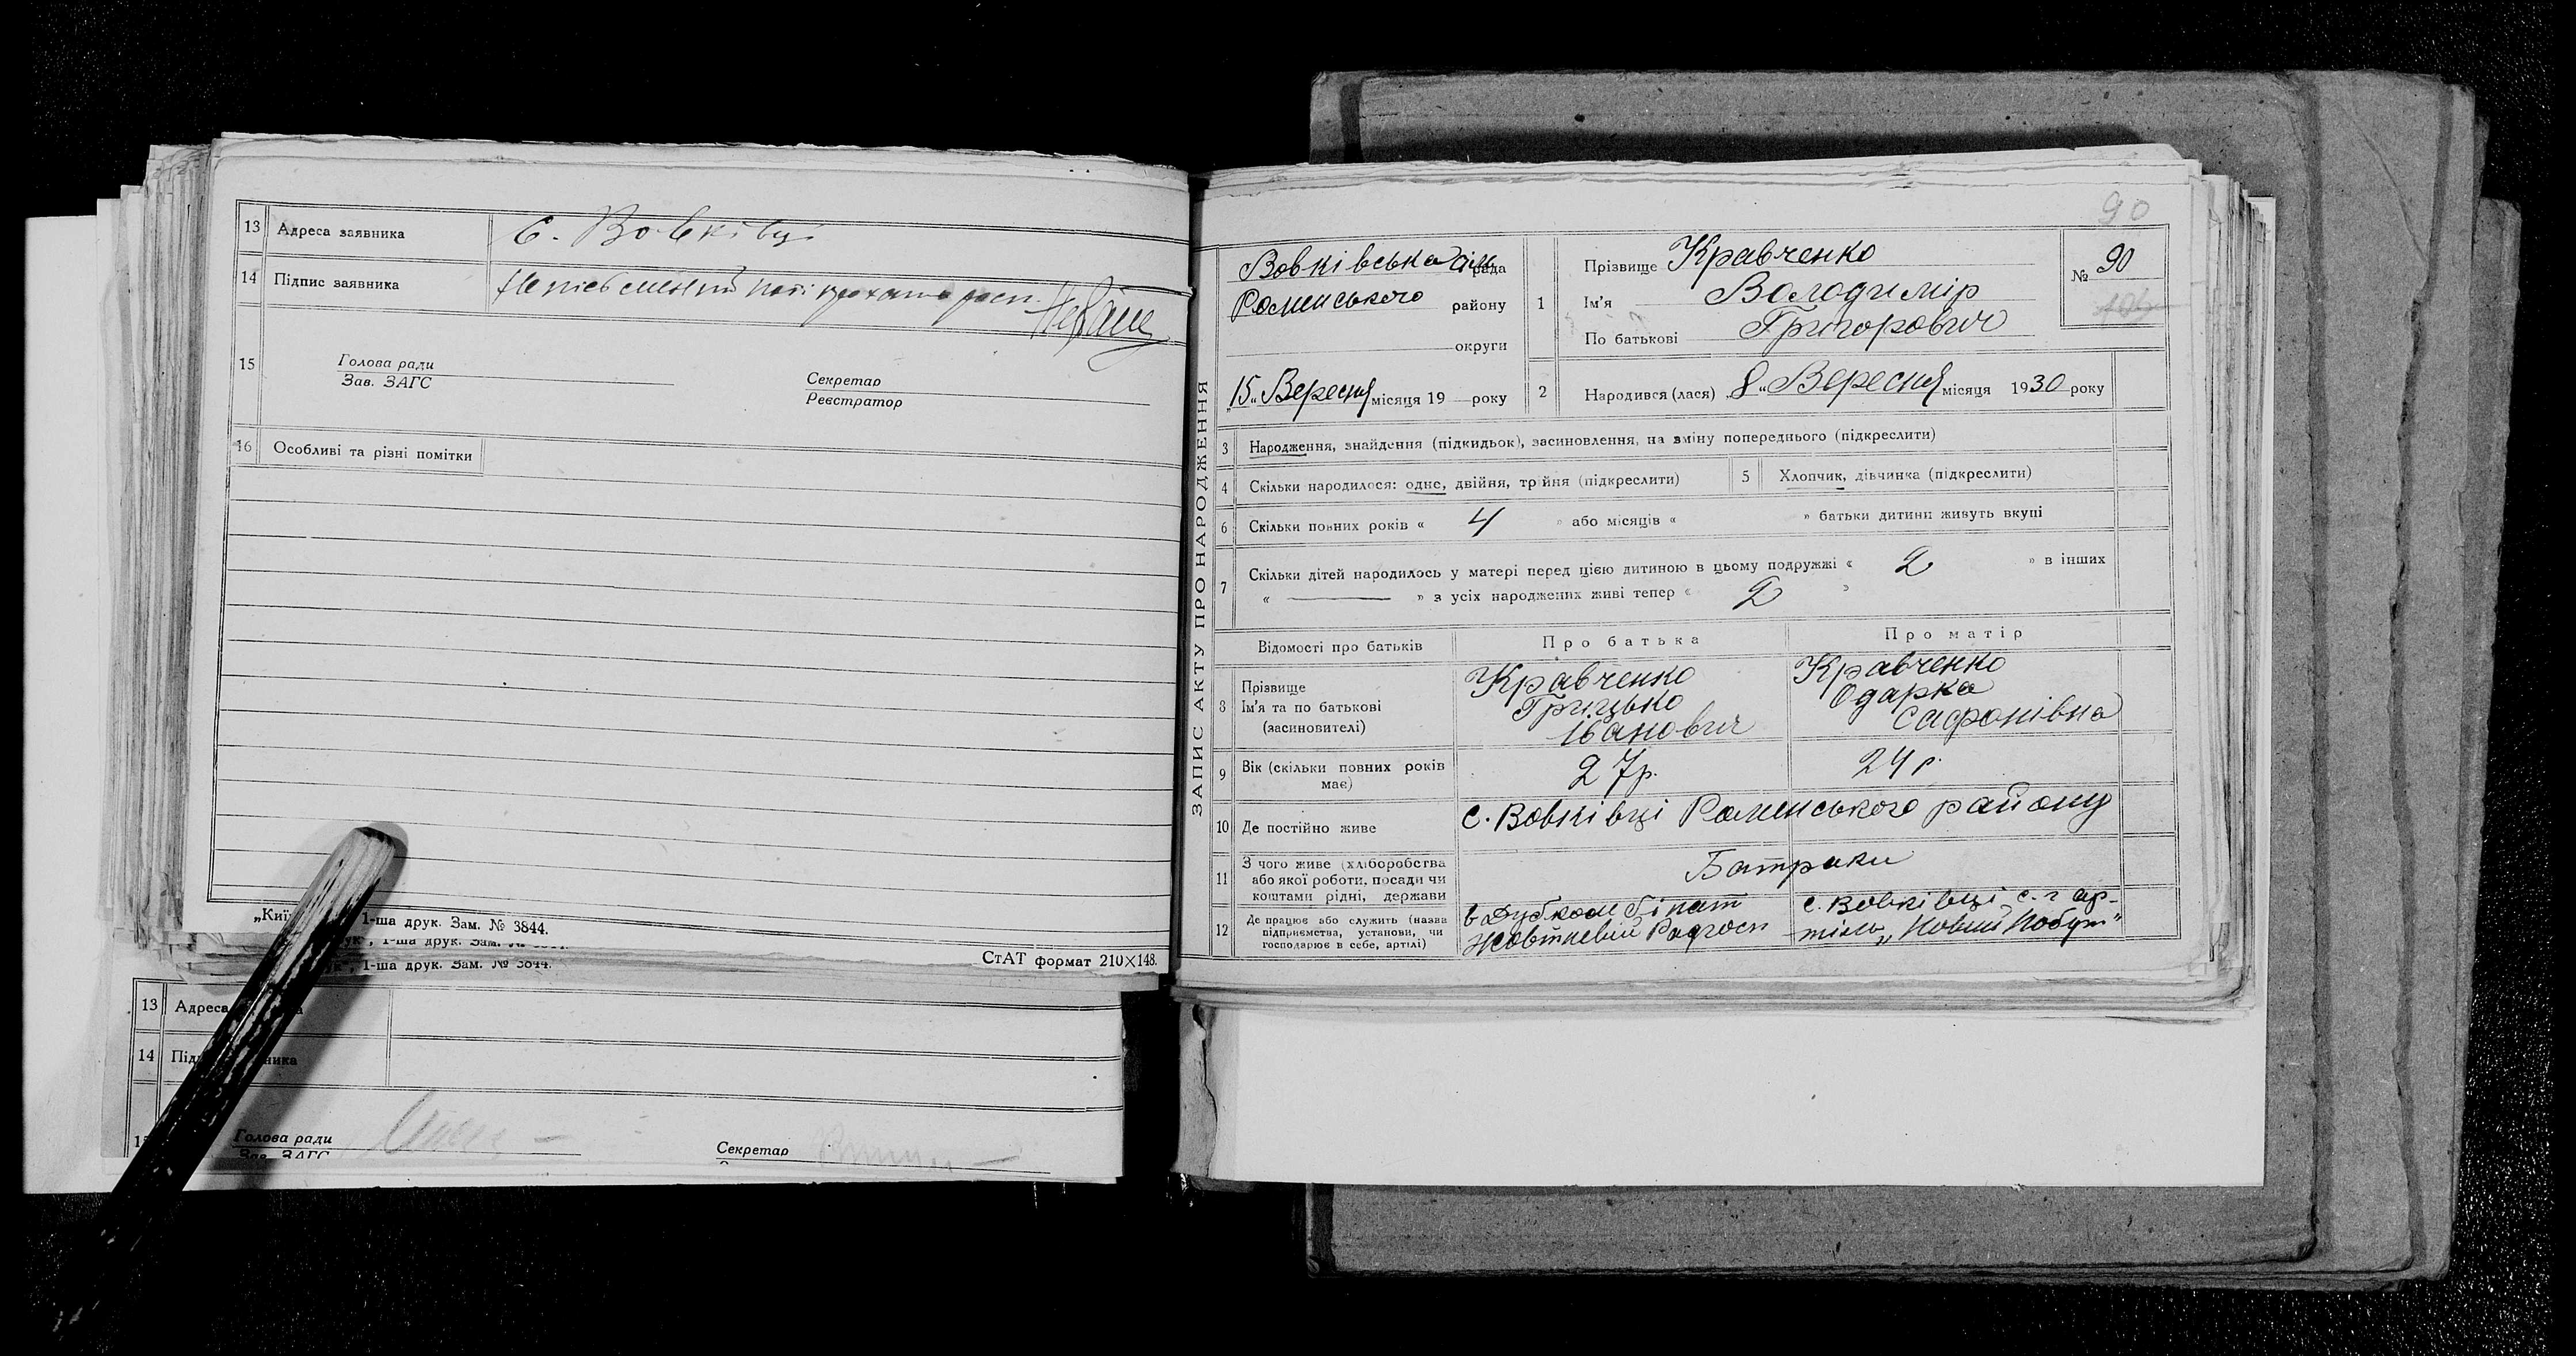 13 Адреса заявника С. Вовківці
14 Підпис заявника Неписьменний
15
Голова ради
Зав. ЗАГС
Секретар
Реєстратор
16 Особливі та різні помітки
1-ша друк. Зам. № 3844.
1-ша друк. Зам. № 3844.
1-ша друк. Зам. № 3844.
СтАТ формат 210×148.
13 Адреса
14
Голова ради
Зав. ЗАГС
Секретар
90
ЗАПИС АКТУ ПРО НАРОДЖЕННЯ
Вовківська сіль рада
Роменського району
округи
„15„ Вересня місяця 19 року
1 Прізвище Кравченко
Ім'я Володимір
По батькові Григорович
№ 90
2 Народився (лася) „8„ Вересня місяця 1930 року
3 Народження, знайдення (підкидьок), засиновлення, на зміну попереднього (підкреслити)
4 Скільки народилося: одне, двійня, трійня (підкреслити) 5 Хлопчик, дівчинка (підкреслити)
6 Скільки повних років « 4 » або місяців « » батьки дитини живуть вкупі
7 Скільки дітей народилось у матері перед цією дитиною в цьому подружжі « 2 » в інших
« — » з усіх народжених живі тепер « 2 »
Відомості про батьків Про батька Про матір
8 Прізвище
Ім'я та по батькові
(засиновителі)
Кравченко
Грицько
Іванович
Кравченко
Одарка
Сафонівна
9 Вік (скільки повних років
має)
27р.
24 р.
10 Де постійно живе с. Вовківці Роменського району
11 З чого живе (хліборобства
або якої роботи, посади чи
коштами рідні, держави
Батраки
12 Де працює або служить (назва
підприємства, установи, чи
господарює в себе, артілі)
Жовтневий Радгосп
с. Вовківці с. г ар-
тіль „Новий Побут"